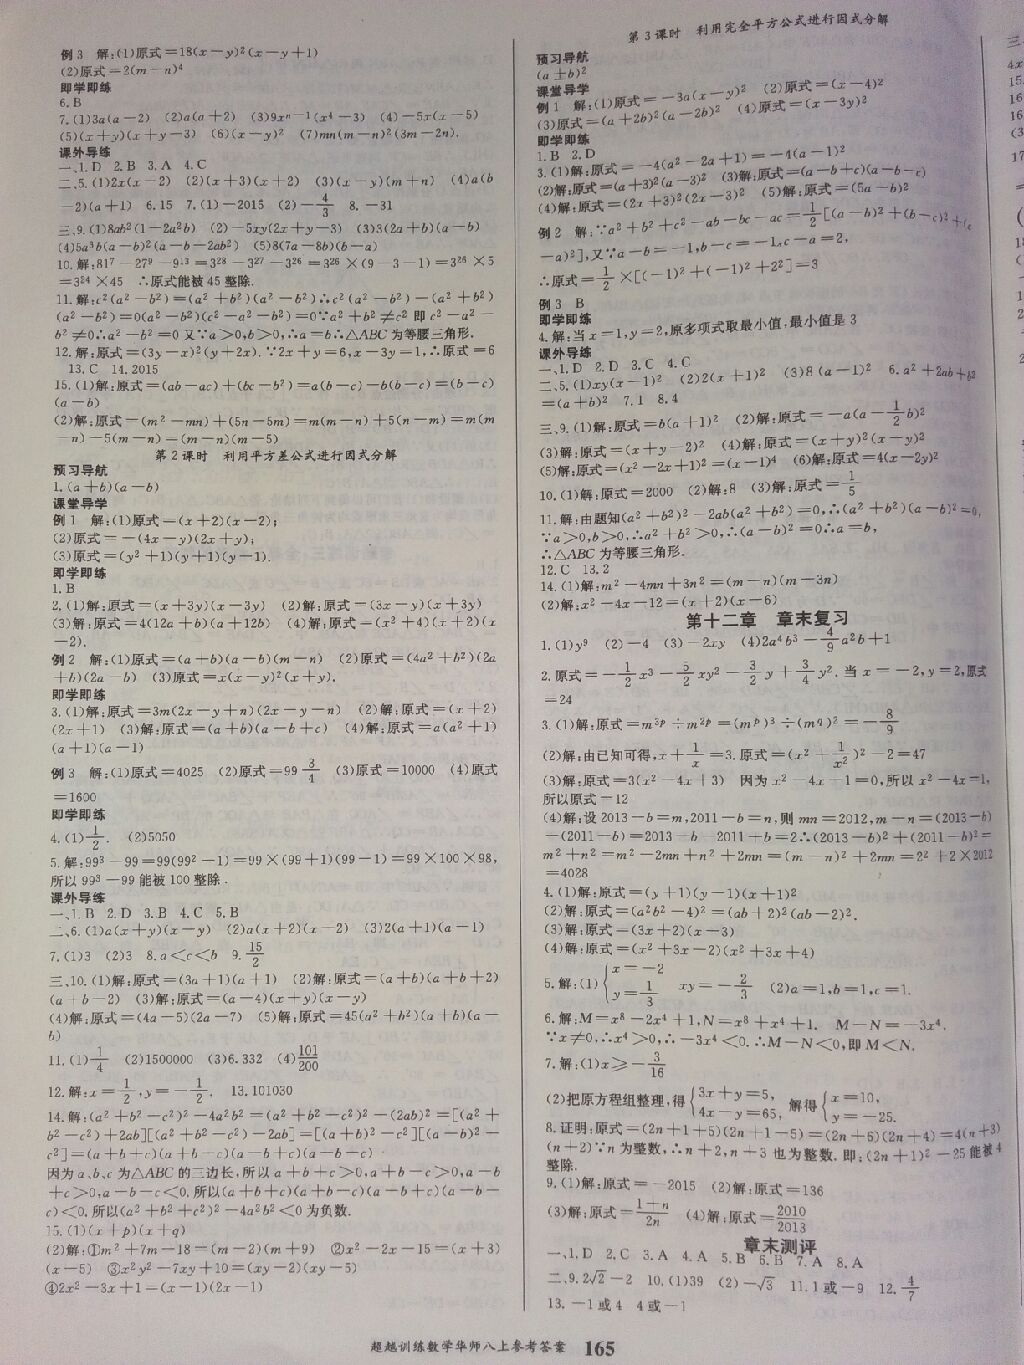 例3 解:(1)原式=18(x-y)²(x-y+1)
(2)原式=2(m-n)⁴
即学即练
6.B
7.(1)3a(a-2) (2)a(a+2) (3)9xⁿ⁻¹(x⁴-3) (4)-5x(x-5)
(5)(x+y)(x+y-3) (6)(x-y)² (7)mn(m-n)²(3m-2n).
课外导练
一、1.D 2.B 3.A 4.C
二、5.(1)2x(x-2) (2)(x+3)(x+2) (3)(x-y)(m+n) (4)a(b
-2)(a+1) 6.15 7.(1)-2015 (2)-4/3 8.-31
三、9.(1)8ab²(1-2a²b) (2)-5xy(2x+y-3) (3)3(2a+b)(a-b)
(4)5a³b(a-b)²(a-b-2ab²) (5)8(7a-8b)(b-a)
10.解:81⁷-27⁹-9¹³=3²⁸-3²⁷-3²⁶=3²⁶×(9-3-1)=3²⁶×5
=3²⁴×45 ∴原式能被45整除.
11.解:c²(a²-b²)=(a²+b²)(a²-b²)∴c²(a²-b²)-(a²+b²)
(a²-b²)=0(a²-b²)(c²-a²-b²)=0∵a²+b²≠c²即c²-a²-
b²≠0∴a²-b²=0又∵a>0,b>0,∴a=b∴△ABC为等腰三角形.
12.解:原式=(3y-x)²(y+2x).∵2x+y=6,x-3y=1,∴原式=6
13.C 14.2015
15.(1)解:原式=(ab-ac)+(bc-b²)=a(b-c)-b(b-c)=(b-c)
(a-b)
(2)解:原式=(m²-mn)+(5n-5m)=m(m-n)+5(n-m)=m(m
-n)-5(m-n)=(m-n)(m-5)
第2课时 利用平方差公式进行因式分解
预习导航
1.(a+b)(a-b)
课堂导学
例1 解:(1)原式=(x+2)(x-2);
(2)原式=-(4x-y)(2x+y);
(3)原式=(y²+1)(y+1)(y-1).
即学即练
1.B
2.(1)解:原式=(x+3y)(x-3y) (2)解:原式=(3x-y)(x+3y)
(3)解:原式=4(12a+b)(a+12b) (4)解:原式=(x²+4)(x+2)(x
-2).
例2 解:(1)原式=(a+b)(a-b)(m-n) (2)原式=(4a²+b²)(2a
+b)(2a-b) (3)原式=x(x-y)²(x+y).
即学即练
3.(1)解:原式=3m(2x-y+n)(2x-y-n) (2)解:原式=(x+2)
(2x+1) (3)解:原式=(a+b)(a-b+c) (4)解:原式=a(a²+1)
(a+1)(a-1)
例3 解:(1)原式=4025 (2)原式=99 3/4 (3)原式=10000 (4)原式
=1600
即学即练
4.(1)1/2. (2)5050
5.解:99³-99=99(99²-1)=99×(99+1)(99-1)=99×100×98,
所以99³-99能被100整除.
课外导练
一、1.B 2.D 3.B 4.C 5.B
二、6.(1)a(x+y)(x-y) (2)a(x+2)(x-2) (3)2(a+1)(a-1)
7.(1)3 (2)3 8.a<c<b 9.15/2
三、10.(1)解:原式=(3a+1)(a+1) (2)解:原式=(a+b)(a+b+2)
(a+b-2) (3)解:原式=(a-4)(x+y)(x-y)
(4)解:原式=(4a-5)(2a-7) (5)解:原式=45(a²+b²)(a+b)(a-
b)
11.(1)1/4 (2)1500000 (3)6.332 (4)101/200
12.解:x=1/2,y=-1/2. 13.101030
14.解:(a²+b²-c²)²-4a²b²=(a²+b²-c²)²-(2ab)²=[(a²+
b²-c²)+2ab][(a²+b²-c²)-2ab]=[(a+b)²-c²][(a-b)²-
c²]=(a+b+c)(a+b-c)(a-b+c)(a-b-c)
因为a、b、c为△ABC的三边长,所以a+b+c>0,a+b-c>0,a-b
+c>0,a-b-c<0.所以(a+b+c)(a+b-c)(a-b+c)(a-b-
c)<0.所以(a²+b²+c²)²-4a²b²<0为负数.
15.(1)(x+p)(x+q)
(2)解:①m²+7m-18=(m-2)(m+9) ②x²-2x-15=(x+3)
(x-5) ③x²y²-7xy+10=(xy-2)(xy-5)
④2x²-3x+1=(x-1)(2x-1)
第3课时 利用完全平方公式进行因式分解
预习导航
(a±b)²
课堂导学
例1 解:(1)原式=-3a(x-y)² (2)原式=(x-4)²
(3)原式=(a+2b)²(a-2b)² (4)原式=(x-3y)²
即学即练
1.B 2.D
3.(1)解:原式=-4(a²-2a+1)=-4(a-1)²
(2)解:原式=(a+3)²(a-3)² (3)解:原式=(a-b+c)(a-b-c)
(4)解:原式=(2x+3)²(2x-3)² (5)解:原式=(5a-b)²
例2 解:∵a²+b²+c²-ab-bc-ac=1/2[(a-b)²+(b-c)²+(c
-a)²],又∵a-b=-1,b-c=-1,c-a=2,
∴原式=1/2×[(-1)²+(-1)²+2²]=3
例3 B
即学即练
4.解:当x=1,y=2,原多项式取最小值,最小值是3
课外导练
一、1.D 2.D 3.C 4.C
二、5.(1)xy(x-1)² (2)2(x+1)² (3)8(a-1)² 6.a²+2ab+b²
=(a+b)² 7.1 8.4
三、9.(1)解:原式=b(a+1)² (2)解:原式=-a(a-1/2b)²
(3)解:原式=(x+y-2)² (4)解:原式=(x+y)²(x-y)²
(5)解:原式=(x²-2x+1)²=(x-1)⁴ (6)解:原式=4(x-2y)²
10.(1)解:原式=2000 (2)解:8 (3)解:原式=1/5
11.解:由题知(a²+b²)²-2ab(a²+b²)=0,∴(a²+b²)(a-b)²=0,
∵a>0,b>0,∴a²+b²>0,∴(a-b)²=0∴a=b,
∴△ABC为等腰三角形.
12.C 13.2
14.(1)解:m²-4mn+3n²=(m-n)(m-3n)
(2)解:x²-4x-12=(x+2)(x-6)
第十二章 章末复习
1.(1)y⁹ (2)-4 (3)-2xy (4)2a⁴b³-4/9a²b+1
2.原式=-1/2x³-5/2xy²-3/2y+3/4y².当x=-2,y=2,原式
=24
3.(1)解:原式=m³ᵖ÷m²ᵖ=(mᵖ)³÷(m^q)²=-8/9
(2)解:由已知可得,x+1/x=3.原式=(x²+1/x²)²-2=47
(3)解:原式=3(x²-4x+3) 因为x²-4x-1=0,所以x²-4x=1,
所以原式=12
(4)解:设2013-b=m,2011-b=n,则mn=2012,m-n=(2013-b)
-(2011-b)=2013-b-2011+b=2∴(2013-b)²+(2011-b)²=
m²+n²=m²-2mn+n²+2mn=(m-n)²+2mn=2²+2×2012
=4028
4.(1)解:原式=(y+1)(y-1)(x+1)²
(2)解:原式=(a²b²-4)²=(ab+2)²(ab-2)².
(3)解:原式=(3x+2)(x-3)
(4)解:原式=(x²+3x-2)(x²+3x+4)
5.解:(1){x=-2 y=1/3 xy=-2/3 (2)a=1,b=1,c=1.
6.解:M=x⁸-2x⁴+1,N=x⁸+x⁴+1. M-N=-3x⁴.
∵x≠0,∴x⁴>0,∴-3x⁴<0.∴M-N<0,即M<N.
7.解:(1)x≥-3/16
(2)把原方程组整理,得{3x+y=5, 4x-y=65, 解得{x=10, y=-25.
8.证明:原式=(2n+1+5)(2n+1-5)=(2n+6)(2n-4)=4(n+3)
(n+2)∵n为整数,∴n+2,n+3也为整数.即:(2n+1)²-25能被4
整除.
9.(1)解:原式=-2015 (2)解:原式=136
(3)解:原式=1-n/2n (4)解:原式=2010/2013
章末测评
一、1.D 2.C 3.A 4.A 5.B 6.B 7.A 8.A
二、9.2√2-2 10.(1)39 (2)-√3 11.1或-9 12.4/7
13.-1或4 4或-1
超越训练数学华师八上参考答案 165